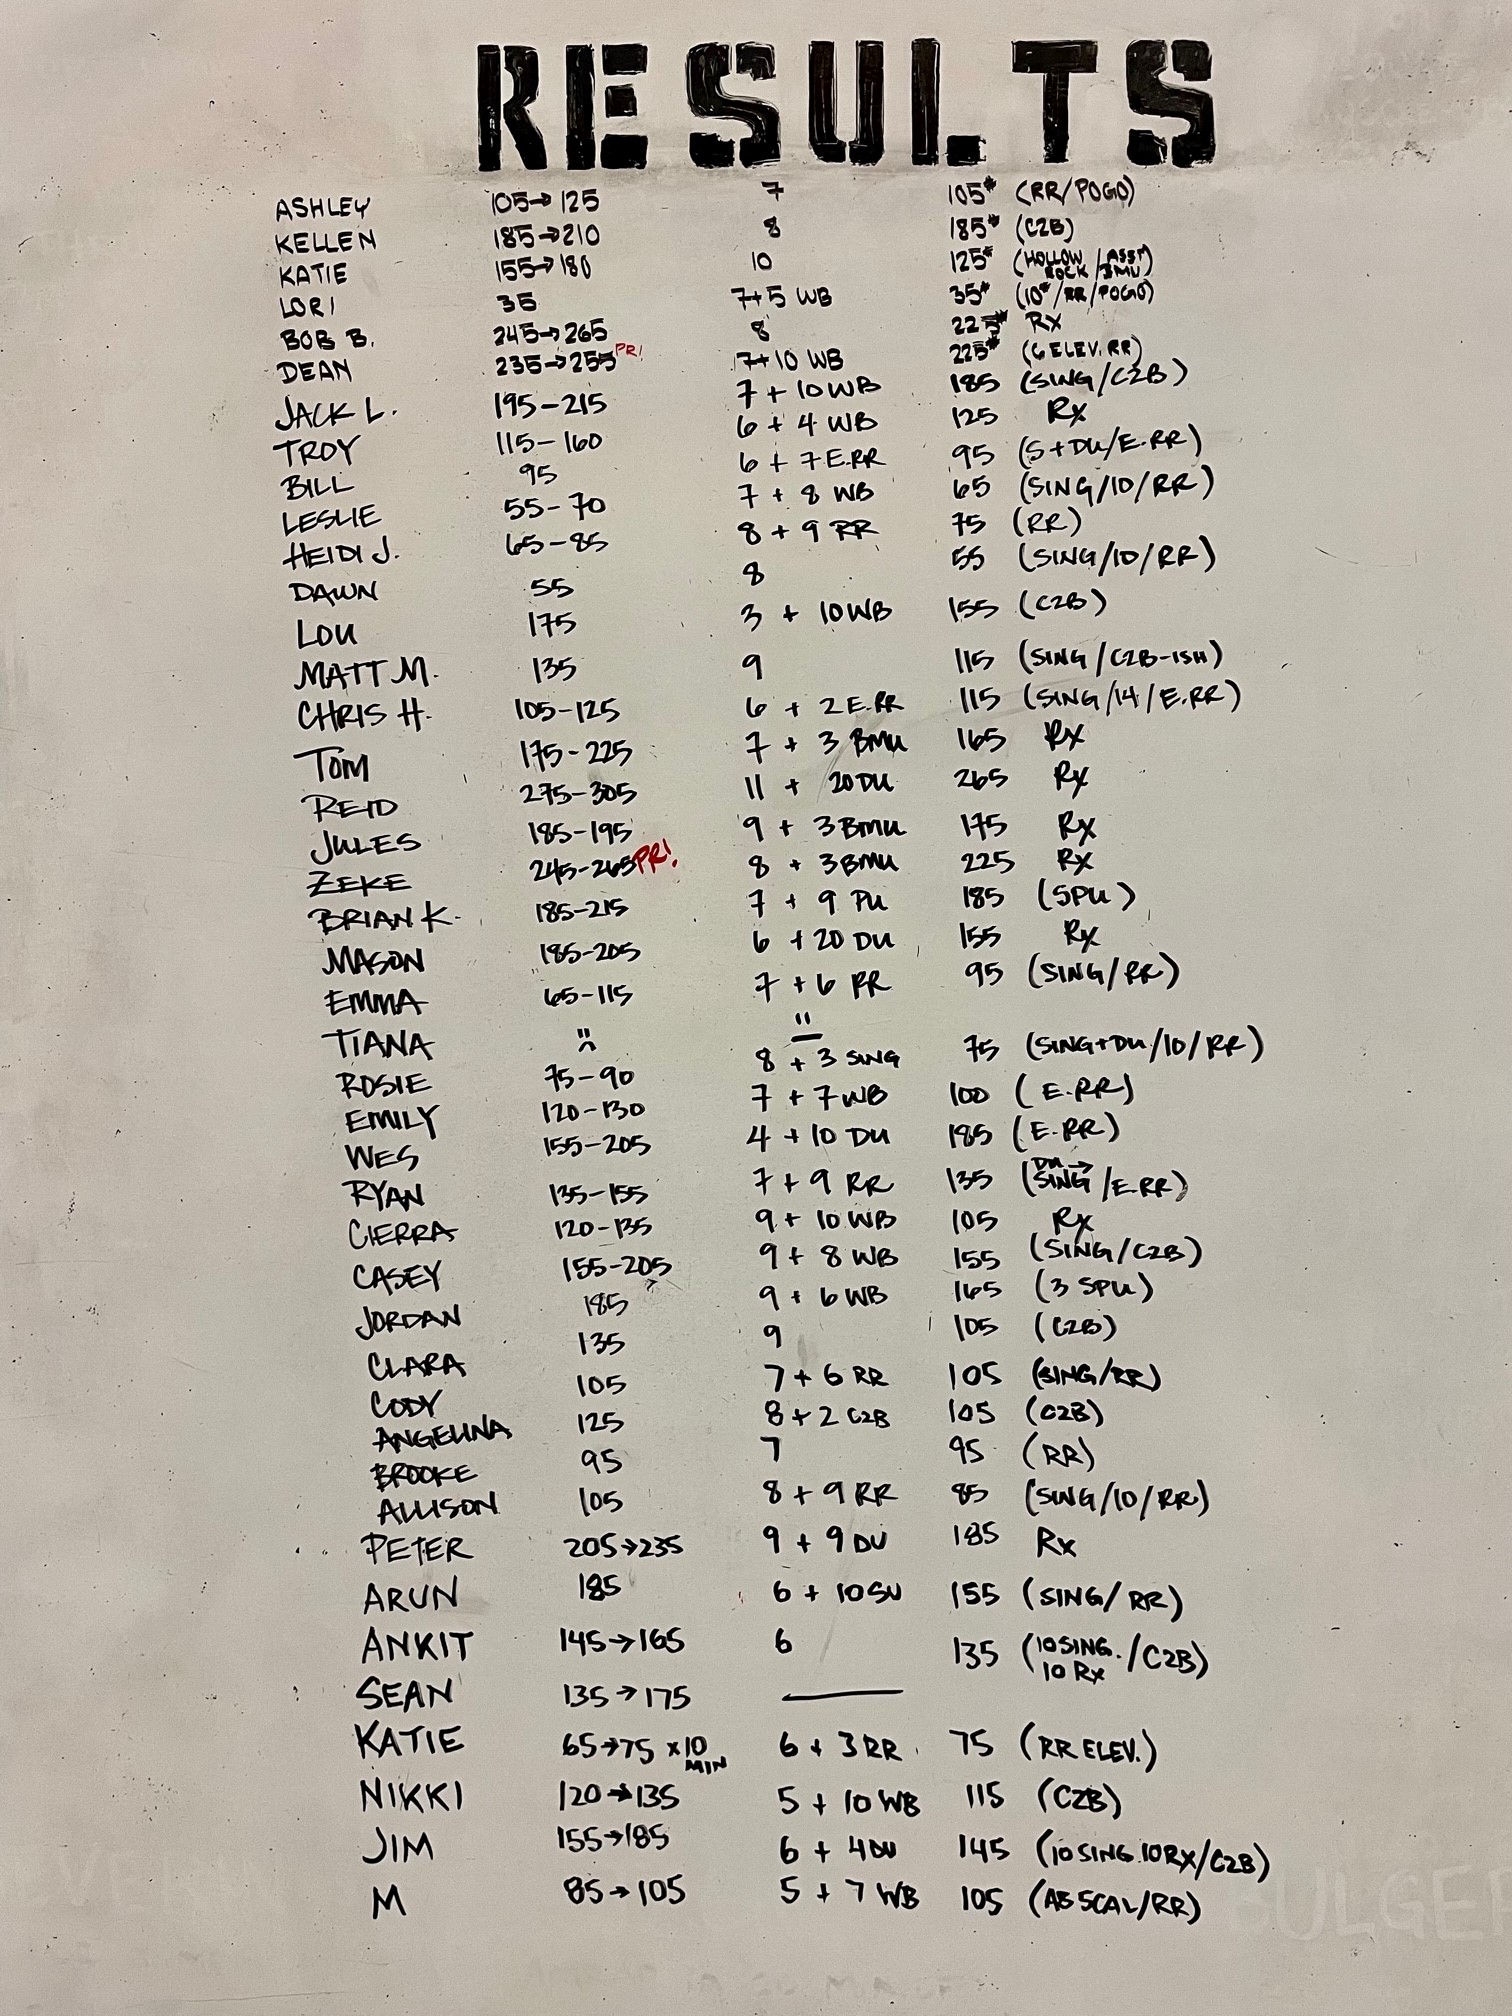 RESULTS
ASHLEY 105→125 7 105# (RR/POGO)
KELLEN 185→210 8 185# (C2B)
KATIE 155→180 10 125# (HOLLOW ROCK/ASST BMU)
LORI 35 7+5 WB 35# (10#/RR/POGO)
BOB B. 245→265 8 225# Rx
DEAN 235→255 PR! 7+10 WB 225# (6 ELEV. RR)
JACK L. 195-215 7 + 10 WB 185 (SING/C2B)
TROY 115-160 6 + 4 WB 125 Rx
BILL 95 6 + 7 E.RR 95 (S+DU/E.RR)
LESLIE 55-70 7 + 8 WB 65 (SING/10/RR)
HEIDI J. 65-85 8 + 9 RR 75 (RR)
DAWN 55 8 55 (SING/10/RR)
LOU 175 3 + 10 WB 155 (C2B)
MATT M. 135 9 115 (SING/C2B-ISH)
CHRIS H. 105-125 6 + 2 E.RR 115 (SING/14/E.RR)
TOM 175-225 7 + 3 BMU 165 Rx
REID 275-305 11 + 20 DU 265 Rx
JULES 185-195 9 + 3 BMU 175 Rx
ZEKE 245-265 PR! 8 + 3 BMU 225 Rx
BRIAN K. 185-215 7 + 9 PU 185 (SPU)
MASON 185-205 6 + 20 DU 155 Rx
EMMA 65-115 7 + 6 RR 95 (SING/RR)
TIANA
ROSIE 75-90 8 + 3 SING 75 (SING+DU/10/RR)
EMILY 120-130 7 + 7 WB 100 (E.RR)
WES 155-205 4 + 10 DU 185 (E.RR)
RYAN 135-155 7 + 9 RR 135 (DU→SING/E.RR)
CIERRA 120-135 9 + 10 WB 105 Rx
CASEY 155-205 9 + 8 WB 155 (SING/C2B)
JORDAN 185 9 + 6 WB 165 (3 SPU)
CLARA 135 9 105 (C2B)
CODY 105 7 + 6 RR 105 (SING/RR)
ANGELINA 125 8 + 2 C2B 105 (C2B)
BROOKE 95 7 95 (RR)
ALLISON 105 8 + 9 RR 85 (SING/10/RR)
PETER 205→235 9 + 9 DU 185 Rx
ARUN 185 6 + 10 SU 155 (SING/RR)
ANKIT 145→165 6 135 (10 SING. 10 Rx/C2B)
SEAN 135→175
KATIE 65→75 x10 MIN 6 + 3 RR 75 (RR ELEV.)
NIKKI 120→135 5 + 10 WB 115 (C2B)
JIM 155→185 6 + 4 DU 145 (10 SING. 10 RX/C2B)
M 85→105 5 + 7 WB 105 (AB SCAL/RR)